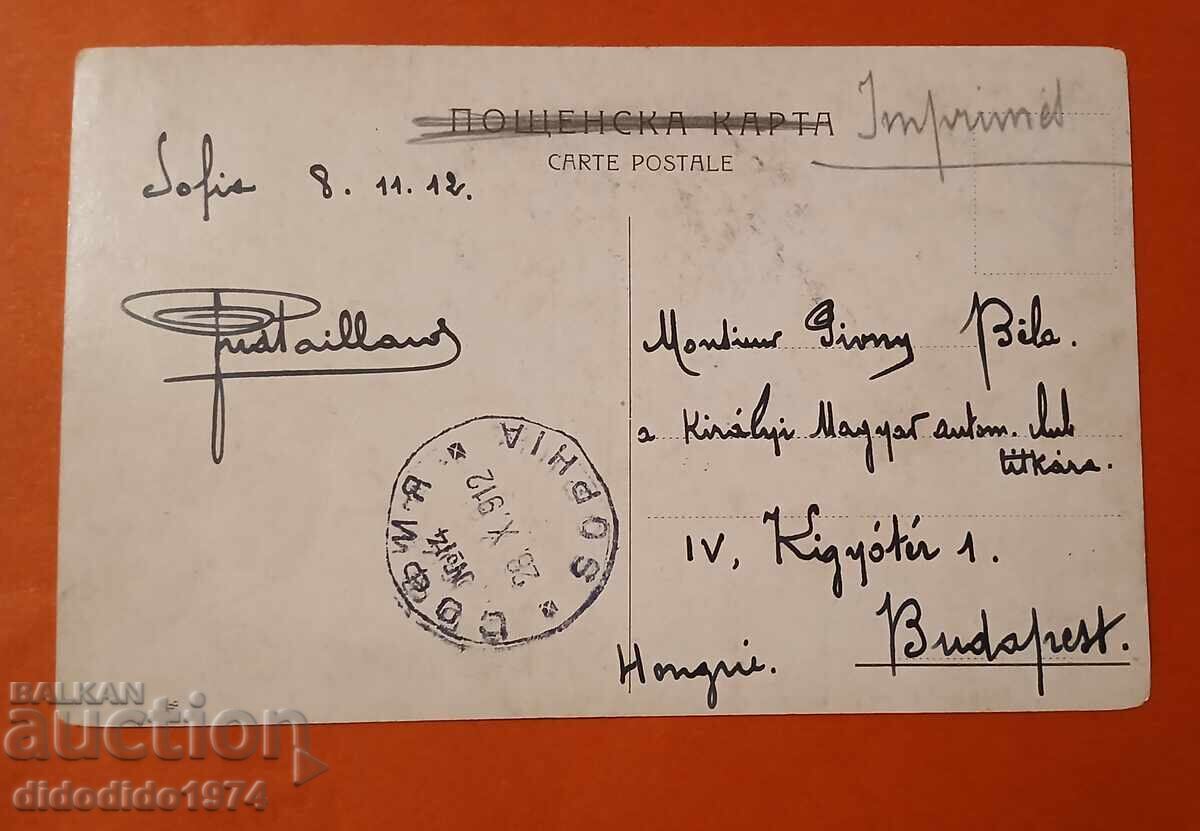 ПОЩЕНСКА КАРТА
Imprimé
CARTE POSTALE
Sofia 8. 11. 12.
Monsieur Pivny Béla.
a Királyi Magyar autom. club
titkára.
IV, Kigyótér 1.
Budapest.
Hongrie.
СОФИЯ * SOPHIA *
28. X. 912
№14
BALKAN
auction
didodido1974